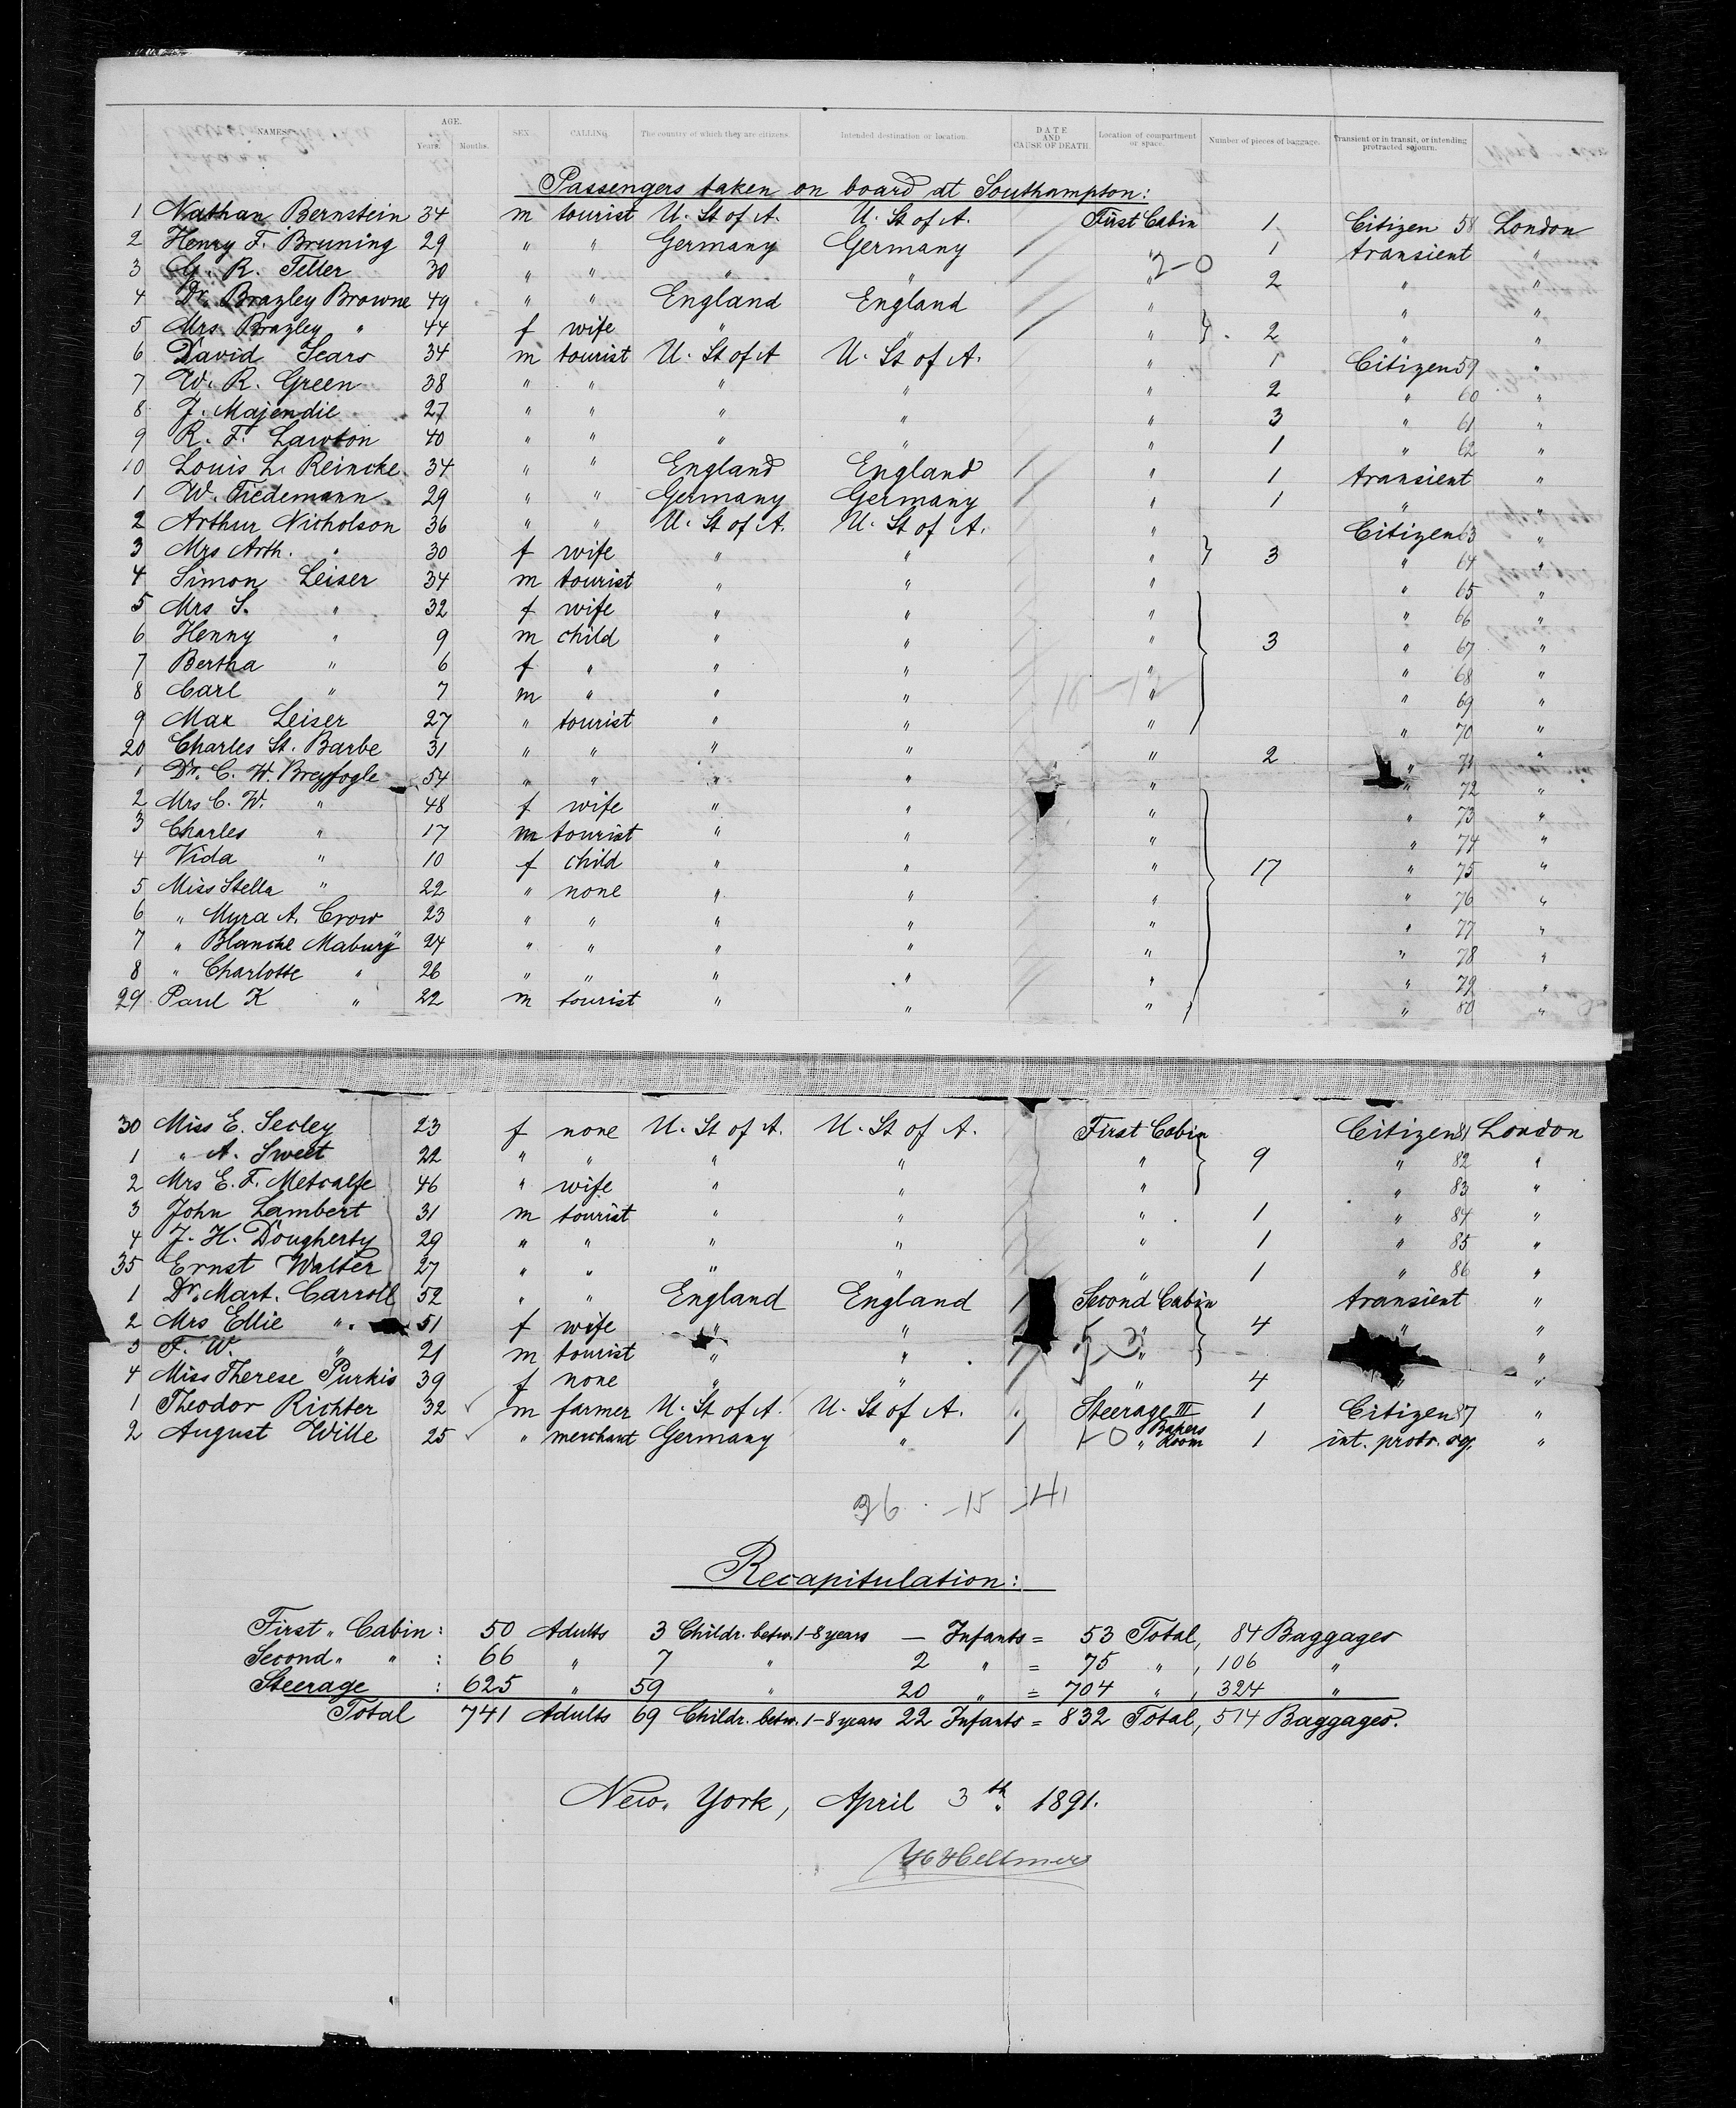 NAMES. AGE. Years. Months. SEX. CALLING. The country of which they are citizens. Intended destination or location. DATE AND CAUSE OF DEATH. Location of compartment or space. Number of pieces of baggage. Transient or in transit, or intending protracted sojourn.
Passengers taken on board at Southampton:
1 Nathan Bernstein 34 m tourist U. St of A. U. St of A. First Cabin 1 Citizen 58 London
2 Henry F. Bruning 29 " " Germany Germany " 1 transient "
3 G. R. Teller 30 " " " " " 2-0 2 " "
4 Dr. Brazley Browne 49 " " England England " " "
5 Mrs Brazley " 44 f wife " " " } 2 " "
6 David Sears 34 m tourist U. St of A U. St of A. " 1 Citizen 59 "
7 W. R. Green 38 " " " " " 2 " 60 "
8 J. Majendie 27 " " " " " 3 " 61 "
9 R. F. Lawton 40 " " " " " 1 " 62 "
10 Louis L. Reincke 34 " " England England " 1 transient "
1 W. Tiedemann 29 " " Germany Germany " 1 " "
2 Arthur Nicholson 36 " " U. St of A. U. St of A. " Citizen 63 "
3 Mrs Arth. " 30 f wife " " " } 3 " 64 "
4 Simon Leiser 34 m tourist " " " " 65 "
5 Mrs S. " 32 f wife " " " " 66 "
6 Henny " 9 m child " " " 3 " 67 "
7 Bertha " 6 f " " " " " 68 "
8 Carl " 7 m " " " " " 69 "
9 Max Leiser 27 " tourist " " " " 70 "
20 Charles St. Barbe 31 " " " " " 2 " 71 "
1 Dr. C. W. Breyfogle 54 " " " " " " 72 "
2 Mrs C. W. " 48 f wife " " " " 73 "
3 Charles " 17 m tourist " " " " 74 "
4 Vida " 10 f child " " " 17 " 75 "
5 Miss Stella " 22 " none " " " " 76 "
6 " Myra A. Crow 23 " " " " " " 77 "
7 " Blanche Mabury 24 " " " " " " 78 "
8 " Charlotte " 26 " " " " " " 79 "
29 Paul K " 22 m tourist " " " " 80 "
30 Miss E. Seeley 23 f none U. St of A. U. St of A. First Cabin Citizen 81 London
1 " A. Sweet 22 " " " " " } 9 " 82 "
2 Mrs E. F. Metcalfe 46 " wife " " " " 83 "
3 John Lambert 31 m tourist " " " 1 " 84 "
4 J. H. Dougherty 29 " " " " 1 " 85 "
35 Ernst Walter 27 " " " " " 1 " 86 "
1 Dr. Mart. Carroll 52 " " England England Second Cabin transient "
2 Mrs Ellie " 51 f wife " " " } 4 " "
3 F. W. " 21 m tourist " " " "
4 Miss Therese Purkis 39 f none " " " 4 " "
1 Theodor Richter 32 m farmer U. St of A. U. St of A. Steerage III 1 Citizen 87 "
2 August Wille 25 " merchant Germany " 1-0 " Bakers Room 1 int. protr. "
36 - 15 - 41
Recapitulation:
First " Cabin: 50 Adults 3 Childr. betw. 1-8 years — Infants = 53 Total, 84 Baggages
Second " " : 66 " 7 " 2 " = 75 " , 106 "
Steerage : 625 " 59 " 20 " = 704 " , 324 "
Total 741 Adults 69 Childr. betw. 1-8 years 22 Infants = 832 Total, 514 Baggages.
New York, April 3th 1891.
Hellmers